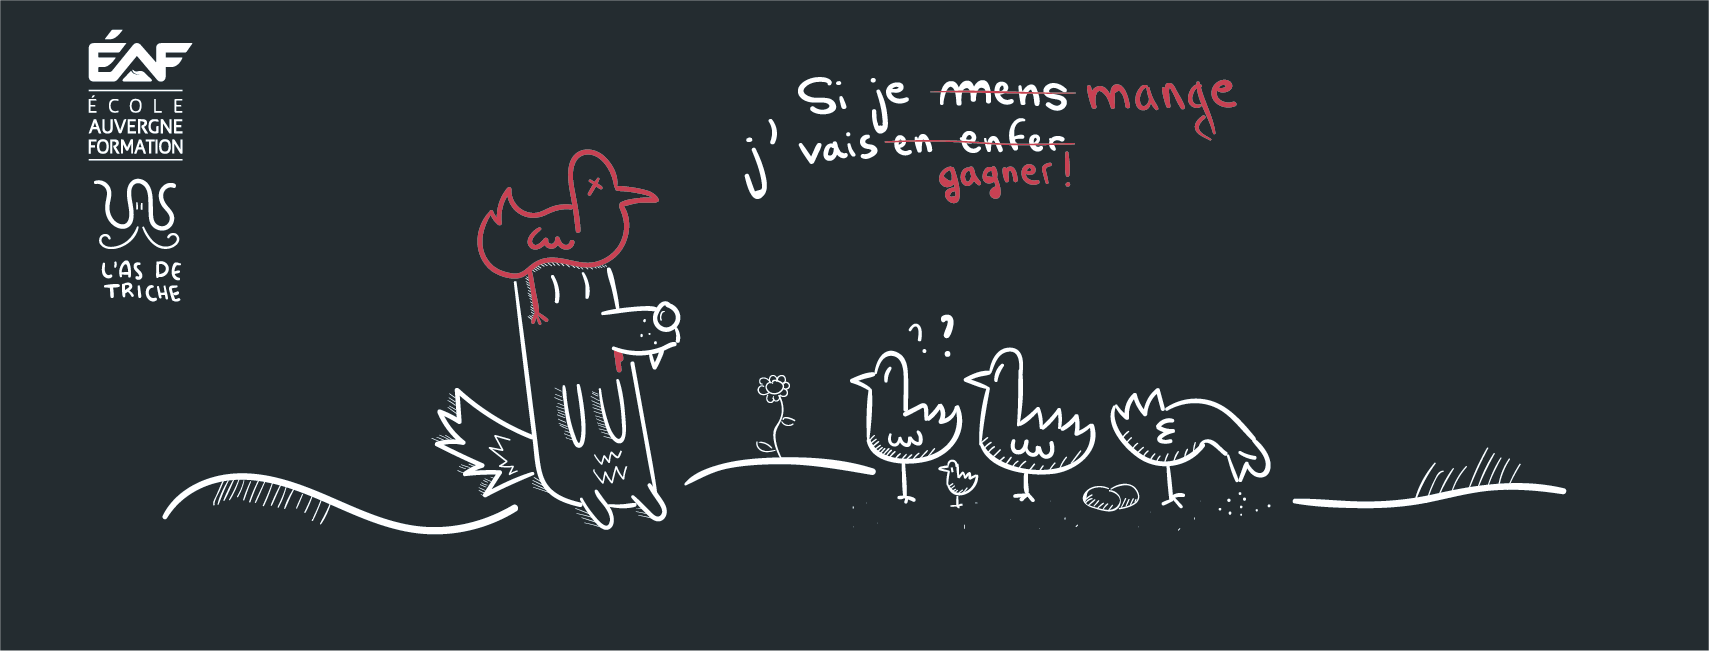 ÉAF
ÉCOLE
AUVERGNE
FORMATION
L'AS DE
TRICHE
Si je mens mange
j' vais en enfer
gagner !
? ?